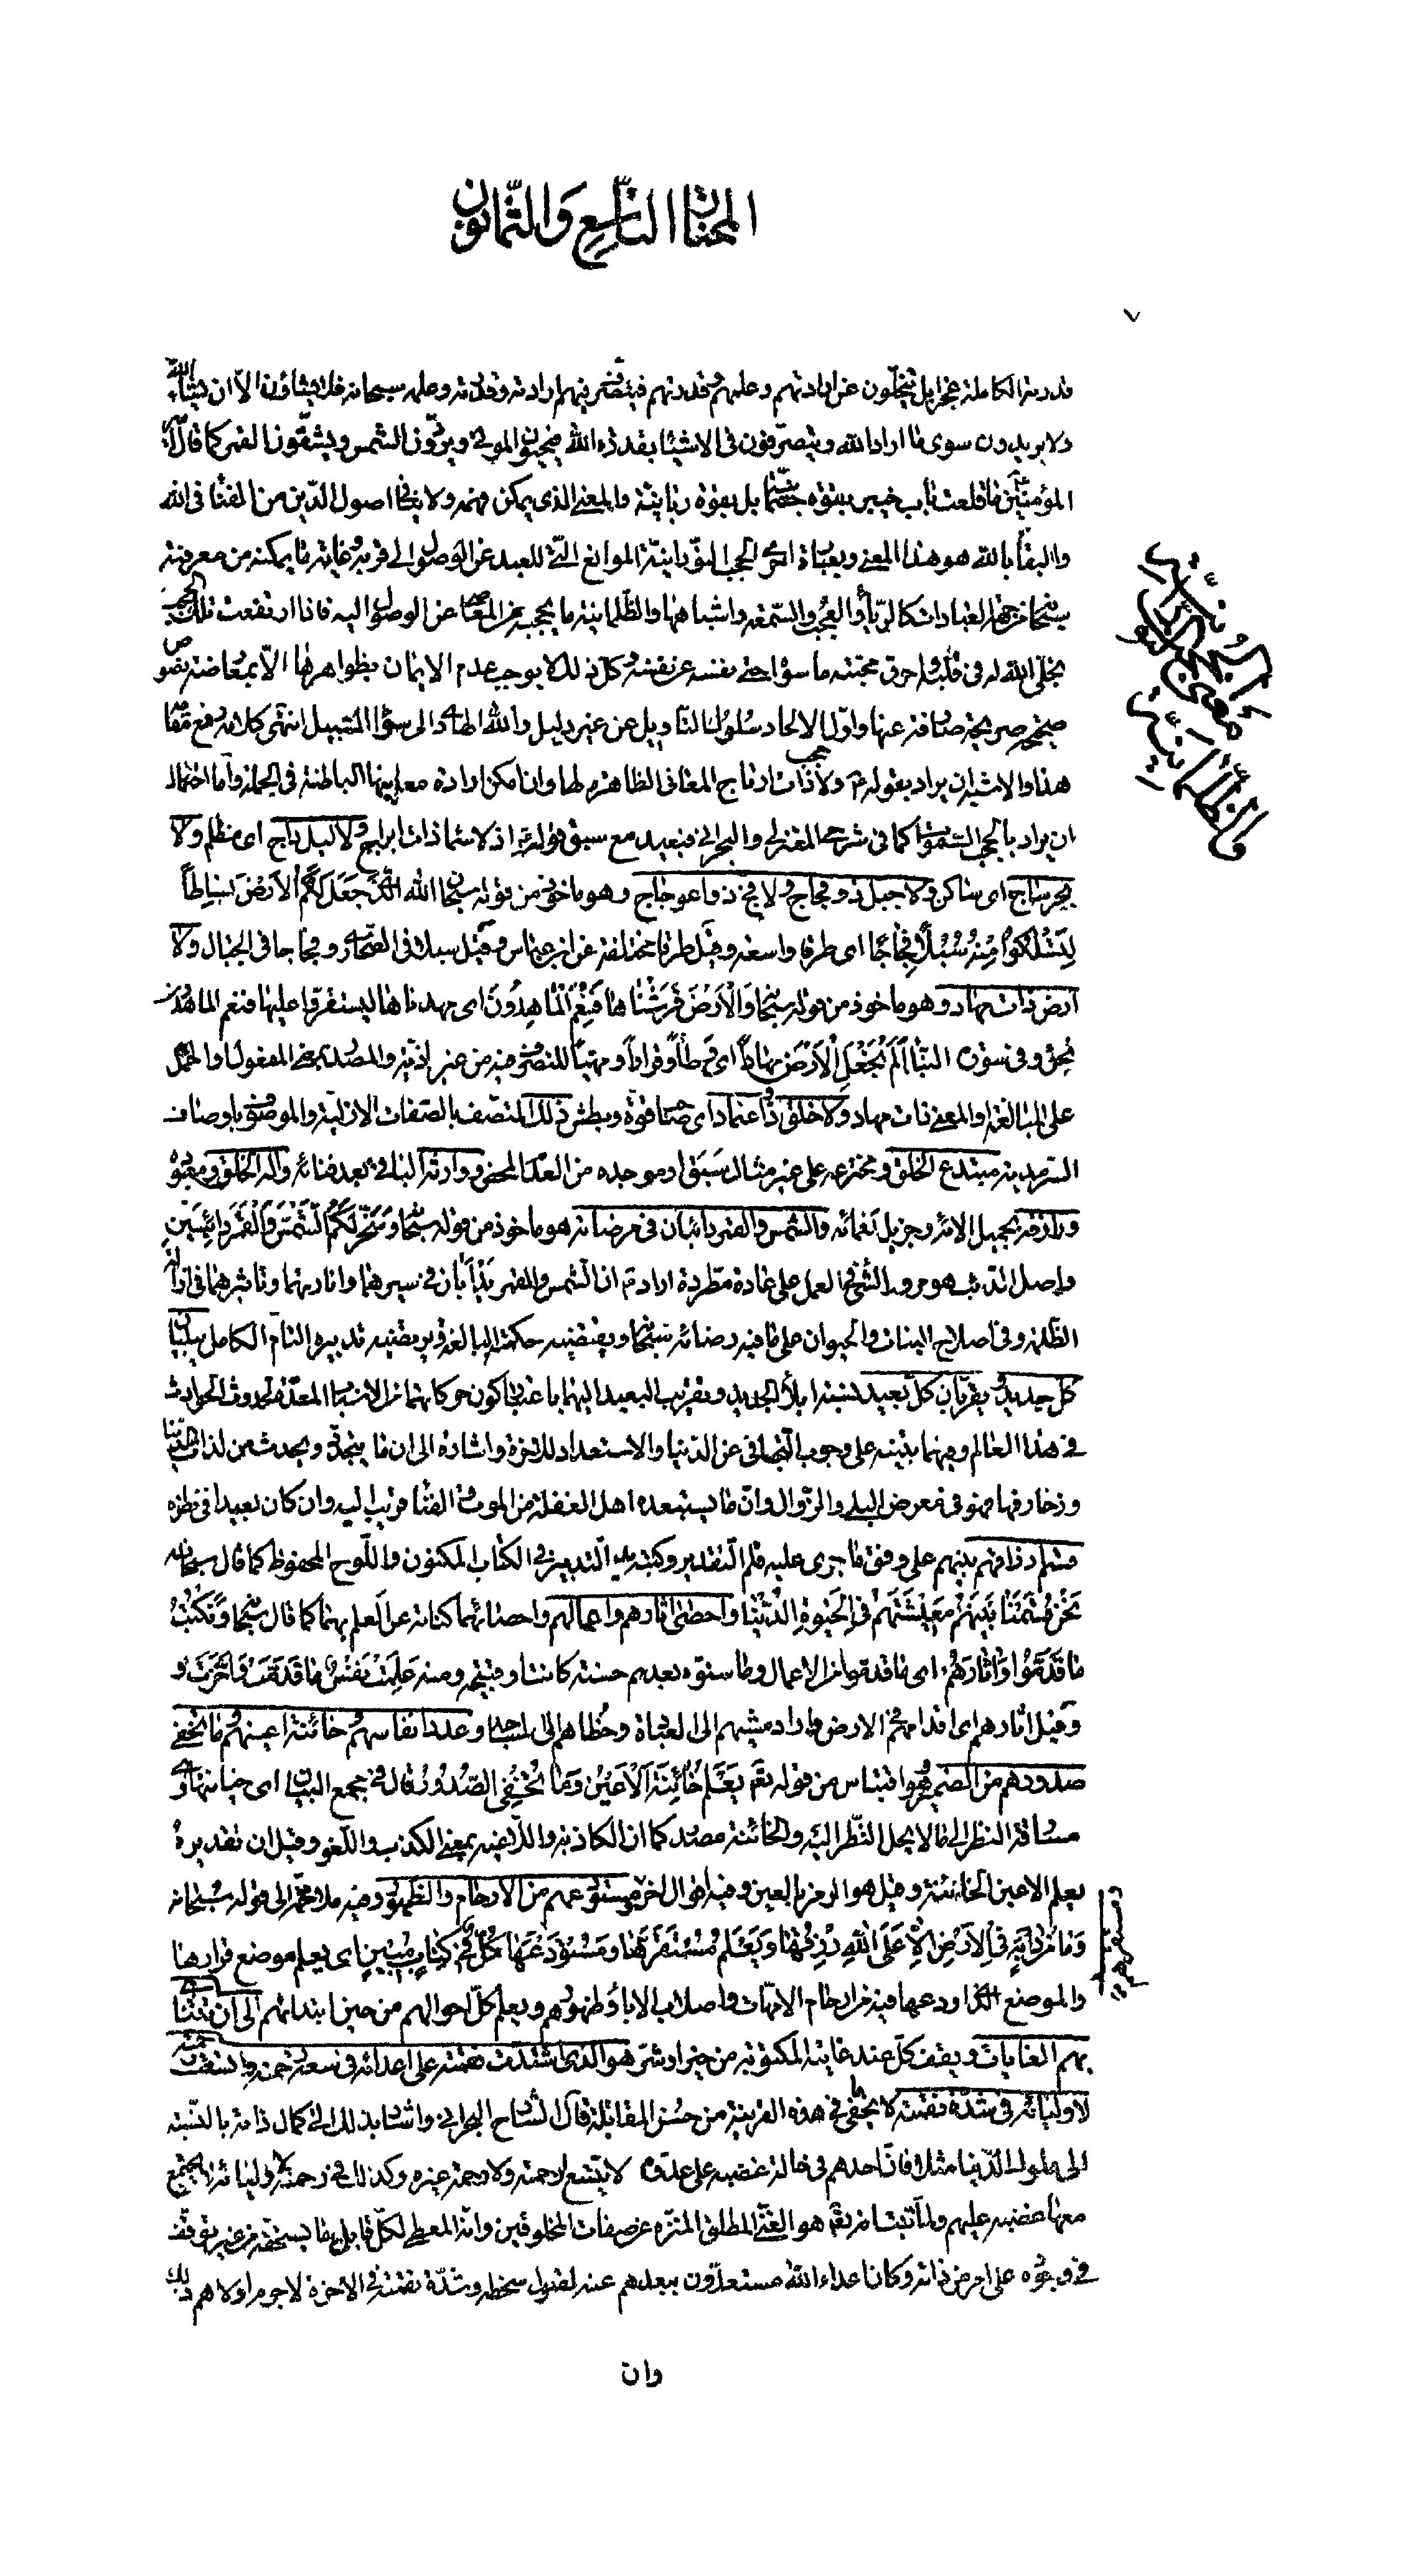 المختار التاسع والثمانون
٧
قدرته الكاملة عن غير بل يتخلّون عن ارادتهم وعلمهم وقدرتهم فيتصرّف فيهم ارادته وقدرته وعلمه سبحانه فلا يشاؤن الّا ان يشاء الله
ولا يريدون سوى ما اراد الله ويتصرّفون في الاشياء بقدرة الله فيحيون الموتى ويردّون الشمس ويشقّون القمر كما قال امير
المؤمنين ما قلعت باب خيبر بقوّة جسمانيّة بل بقوّة ربّانيّة والمعنى الذي يمكن فهمه ولا ينافى اصول الدّين من الفناء في الله
والبقاء بالله هو هذا المعنى وبعبارة اخرى الحجب النّورانيّة الموانع الّتي للعبد عن الوصول الى قربه وغاية ما يمكنه من معرفته
سبحانه من جهة العبادات كالرّيا والعجب والسّمعة واشباهها والظّلمانيّة ما يحجبه من المعاصى عن الوصول اليه فاذا ارتفعت تلك الحجب
تجلّى الله له في قلبه واحرق محبّته ما سواه حتّى نفسه عن نفسه وكلّ ذلك لا يوجب عدم الايمان بظواهرها الّا بمعارضة نصوص
صحيحة صريحة صارفة عنها واوّل الالحاد سلوك التّأويل من غير دليل والله الهادى الى سواء السّبيل انتهى كلامه رفع مقامه
هذا والاشبه ان يراد بقوله ع ولا حجب ذات ارتاج المعانى الظاهرة لها وان امكن ارادة معانيها الباطنة في الجملة وامّا احتمال
ان يراد بالحجب السّموات كما في شرحى المعتزلى والبحرانى فبعيد مع سبق قوله اذ لا سماء ذات ابراج ولا ليل داج اى مظلم ولا
بحر ساج اى ساكن ولا جبل ذو فجاج ولا فجّ ذو اعوجاج وهو ماخوذ من قوله سبحانه الله الّذي جَعَلَ لَكُمُ الْاَرْضَ بِسٰاطاً
لِتَسْلُكُوا مِنْهٰا سُبُلاً فِجٰاجًا اى طرقا واسعة وقيل طرقا مختلفة عن ابن عبّاس وقيل سبلا في الصّحارى وفجاجا في الجبال ولا
ارض ذات مهاد وهو ماخوذ من قوله سبحانه وَالْاَرْضَ فَرَشْنٰاهٰا فَنِعْمَ الْمٰاهِدُونَ اى مهدناها ليستقرّوا عليها فنعم الماهدون
نحن وفي سورة النّبأ اَلَمْ نَجْعَلِ الْاَرْضَ مِهٰاداً اى وطاء وقرارا ومهيّا للتصرّف فيه من غير اذيّة والمصدر بمعنى المفعول او الحمل
على المبالغة او المعنى ذات مهاد ولا خلق ذو اعتماد اى صاحب قوّة وبطش ذلك المتّصف بالصّفات الازليّة والموصوف باوصاف
السّرمديّة مبتدع الخلق ومخترعه على غير مثال سبق وموجده من العدم المحض ووارثه الباقى بعد فنائه واله الخلق ومعبوده
ورازقه بجميل الائه وجزيل نعمائه والشمس والقمر دائبان في مرضاته هو ماخوذ من قوله سبحانه وَسَخَّرَ لَكُمُ الشَّمْسَ وَالْقَمَرَ دٰائِبَيْنِ
واصل الدّئب هو مرور الشّيء في العمل على عادة مطّردة اراد ع انّ الشمس والقمر يدأبان في سيرهما وانارتهما وتاثيرهما في ازالة
الظّلمة وفي اصلاح النبات والحيوان على ما فيه رضائه سبحانه ويقتضيه حكمته البالغة ويرتضيه تدبيره التامّ الكامل يبليان
كلّ جديد ويقرّبان كلّ بعيد نسبة ابلاء الجديد وتقريب البعيد اليهما باعتبار كون حركاتهما من الاسباب المعدّة لحدوث الحوادث
في هذا العالم وفيهما تنبيه على وجوب التّجافى عن الدّنيا والاستعداد للاخرة واشارة الى ان ما يتجدّد ويحدث من لذات الدّنيا
وزخارفها فهو في معرض البلى والزّوال وانّ ما يستبعده اهل الغفلة من الموت والفناء قريب اليه وان كان بعيدا في نظره
قسّم ارزاقهم بينهم على وفق ما جرى عليه قلم التّقدير وكتبته يد التّدبير في الكتاب المكنون واللّوح المحفوظ كما قال سبحانه
نَحْنُ قَسَمْنٰا بَيْنَهُمْ مَعِيشَتَهُمْ فِى الْحَيٰوةِ الدُّنْيٰا واحصى اثارهم واعمالهم واحصائهما كناية عن العلم بهما كما قال سبحانه وَنَكْتُبُ
مٰا قَدَّمُوا وَاٰثٰارَهُمْ اى ما قدّموا من الاعمال وما سنّوه بعدهم حسنة كانت او قبيحة ومنه عَلِمَتْ نَفْسٌ مٰا قَدَّمَتْ وَاَخَّرَتْ و
وقيل اثارهم اى اقدامهم في الارض واراد مشيهم الى العبادة وخُطاهم الى المساجد وعدد انفاسهم وخائنة اعينهم وما تخفى
صدورهم من الضمير هو اقتباس من قوله تعم يَعْلَمُ خٰائِنَةَ الْاَعْيُنِ وَمٰا تُخْفِى الصُّدُورُ قال في مجمع البيان اى خيانتها وهى
مسارقة النظر الى ما لا يحل النّظر اليه والخائنة مصدر كما ان الكاذبة واللّاغية بمعنى الكذب واللّغو وقيل ان تقديره
يعلم الاعين الخائنة وقيل هو الرمز بالعين وفيه اقوال اخر ومستقرّهم من الارحام والظهور وفيه ملاحظة الى قوله سبحانه
وَمٰا مِنْ دٰابَّةٍ فِى الْاَرْضِ اِلّٰا عَلَى اللهِ رِزْقُهٰا وَيَعْلَمُ مُسْتَقَرَّهٰا وَمُسْتَوْدَعَهٰا كُلٌّ فِى كِتٰابٍ مُبِينٍ اى يعلم موضع قرارها
والموضع الّذي اودعها فيه من ارحام الامّهات واصلاب الاباء وظهورهم ويعلم كلّ احوالهم من حين ابتدائهم الى ان تتناهى
بهم الغايات ويقف كلّ عند غايته المكتوبة من خير او شرّ هو الّذي اشتدّت نقمته على اعدائه في سعة رحمته واتّسعت رحمته
لاوليائه في شدّة نقمته لا يخفى ما في هذه القرينة من حسن المقابلة قال الشّارح البحرانى واشار بذلك الى كمال ذاته بالنّسبة
الى ملوك الدّنيا مثلا فانّ احدهم في حالة غضبه على عدوّه لا يتّسع لرحمته ولا رحمة غيره وكذلك في رحمته لاوليائه لا يجتمع
معها غضبه عليهم ولمّا ثبت انه تعم هو الغنىّ المطلق المنزّه عن صفات المخلوقين وانّه المعطى لكلّ قابل ما يستحقّه من غير توقّف
في وجوده على امر من ذاته وكان اعداء الله مستعدّون ببعدهم عنه لقبول سخطه وشدّة نقمته في الاخرة لا جرم اولاهم ذلك
وان